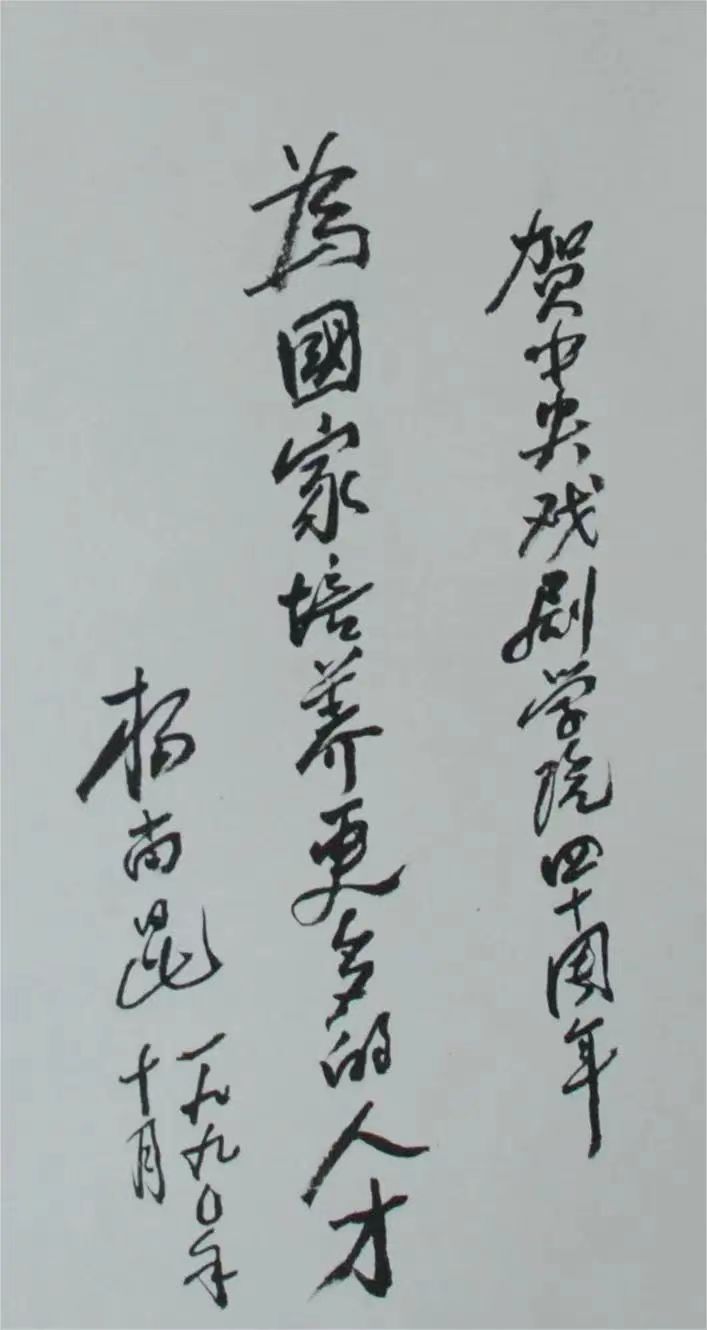 贺中央戏剧学院四十周年
為國家培养更多的人才
杨尚昆
一九九〇年
十月